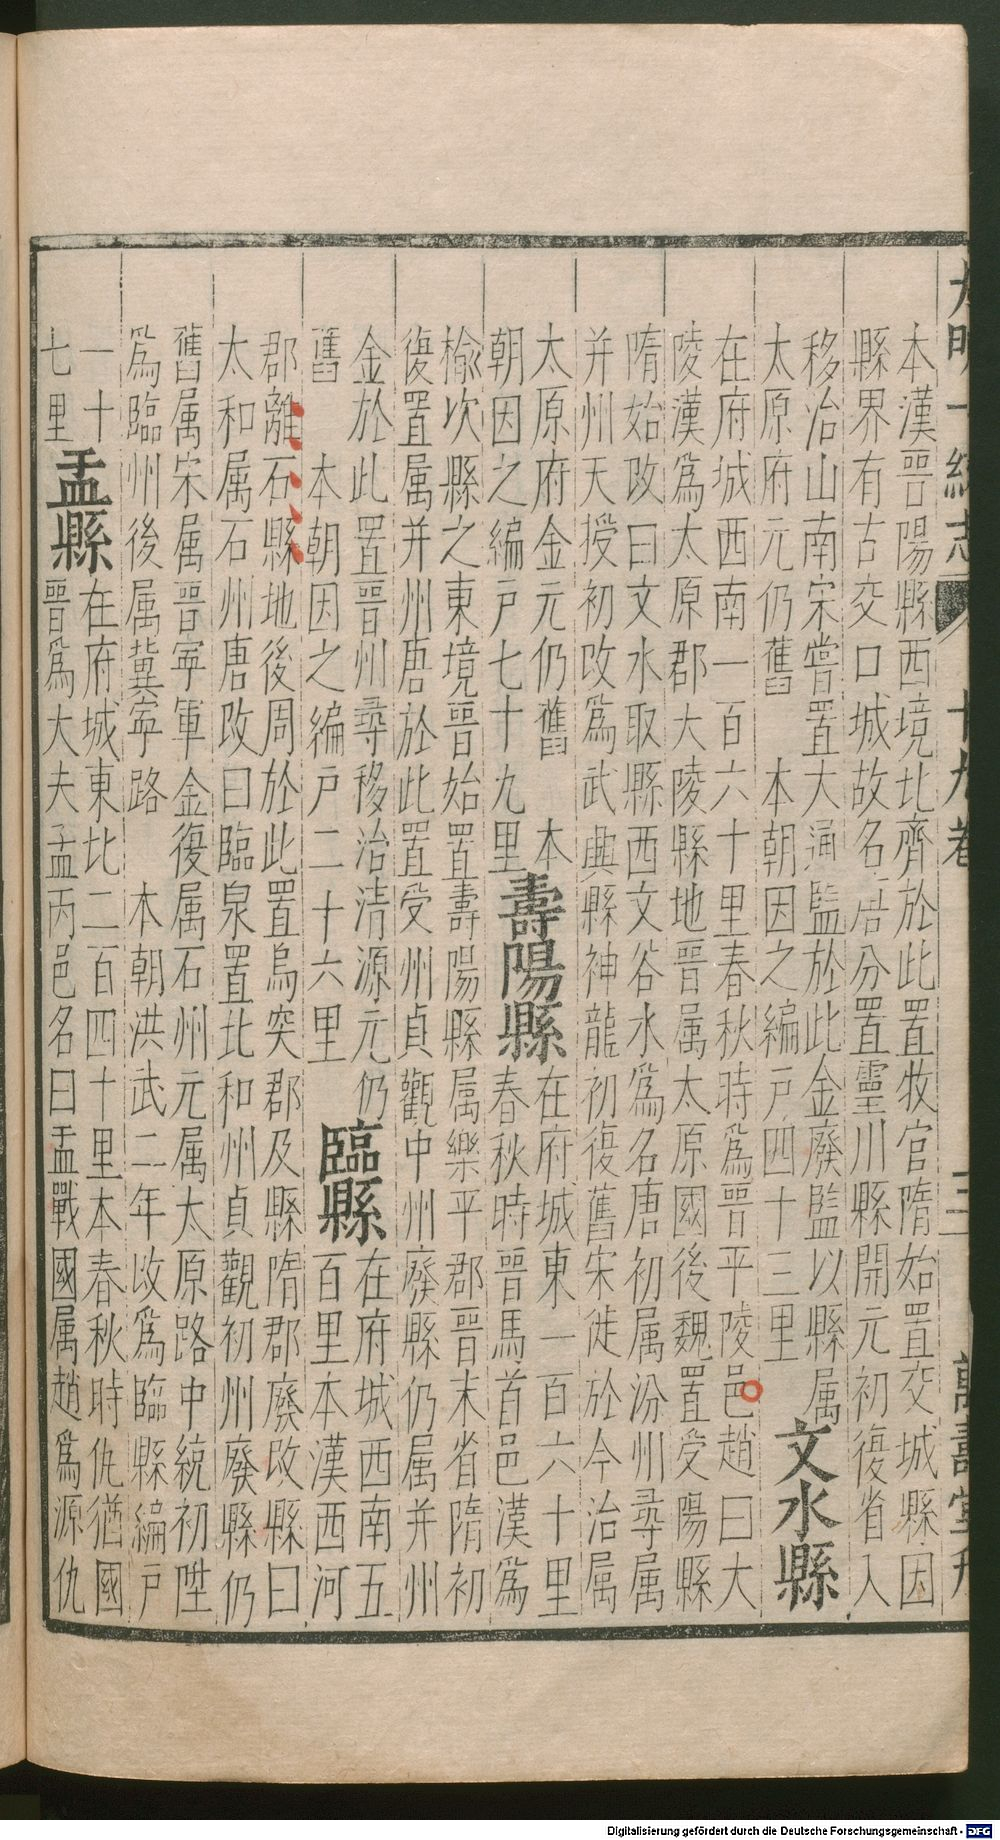 大明一統志 十九卷 三 萬壽堂刊
本漢晉陽縣西境北齊於此置牧官隋始置交城縣因
縣界有古交口城故名唐分置靈川縣開元初復省入
移治山南宋嘗置大通監於此金廢監以縣属
太原府元仍舊 本朝因之編戸四十三里
文水縣
在府城西南一百六十里春秋時爲晉平陵邑趙曰大
陵漢爲太原郡大陵縣地晉属太原國後魏置受陽縣
隋始改曰文水取縣西文谷水爲名唐初属汾州尋属
并州天授初改爲武興縣神龍初復舊宋徙於今治属
太原府金元仍舊 本
朝因之編戸七十九里
壽陽縣
在府城東一百六十里
春秋時晉馬首邑漢爲
榆次縣之東境晉始置壽陽縣属樂平郡晉末省隋初
復置属并州唐於此置受州貞觀中州廢縣仍属并州
金於此置晉州尋移治清源元仍
舊 本朝因之編戸二十六里
臨縣
在府城西南五
百里本漢西河
郡離石縣地後周於此置烏突郡及縣隋郡廢改縣曰
太和属石州唐改曰臨泉置北和州貞觀初州廢縣仍
舊属宋属晉寧軍金復属石州元属太原路中統初陞
爲臨州後属冀寧路 本朝洪武二年改爲臨縣編戸
一十
七里
盂縣
在府城東北二百四十里本春秋時仇猶國
晉爲大夫孟丙邑名曰盂戰國属趙爲源仇
Digitalisierung gefördert durch die Deutsche Forschungsgemeinschaft - DFG